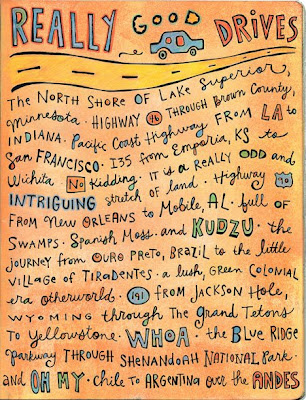 REALLY GOOD DRIVES
The NORTH SHORE OF LAKE Superior,
Minnesota · HIGHWAY 46 THROUGH Brown County,
INDIANA. Pacific Coast Highway FROM LA to
San FRANCISCO · I35 from Emporia, KS to
Wichita. No Kidding. IT is a REALLY ODD and
INTRIGUING stretch of land. Highway 90
FROM NEW ORLEANS to Mobile, AL. full OF
SWAMPS. Spanish Moss. and KUDZU · the
JOURNEY from OURO PRETO, BRAZIL to the little
village of TIRADENTES · a lush, GREEN COLONIAL
era otherworld. 191 FROM JACKSON HOLE,
WYOMING through The GRAND TETONS
To Yellowstone. WHOA. the BLUE RIDGE
Parkway THROUGH SHENANDOAH NATIONAL Park
and OH MY · chile to ARGENTINA over the ANDES